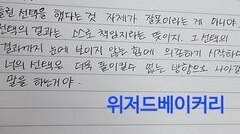 틀린 선택을 했다는 것 자체가 잘못이라는 게 아니야
선택의 결과는 스스로 책임지라는 뜻이지. 그 선택의
결과가지 눈에 보이지 않는 힘에 의존하기 시작하면
너의 선택은 더욱 돌이킬 수 없는 방향으로 나아갈
말을 하는거야.
위저드베이커리